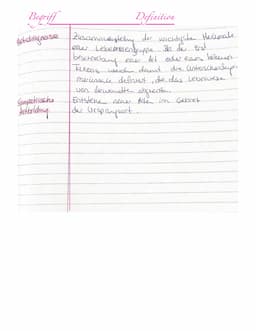 Begriff Definition
Artdiagnose Zusammenstellung der wichtigsten Merkmale
einer Lebewesengruppe. Bei der Erst
beschreibung einer Art oder eines höheren
Taxons werden damit die Unterscheidungs
merkmale definiert, die das Lebewesen
von verwandten abgrenzen.
Sympatrische Entstehen neuer Arten im Gebiet
Artbildung der Ursprungsart.